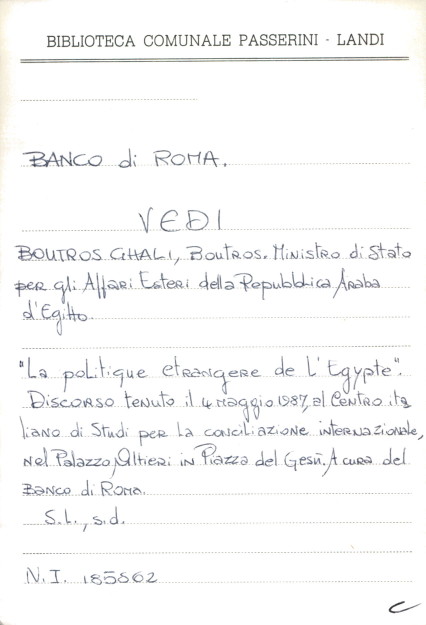 BIBLIOTECA COMUNALE PASSERINI - LANDI
BANCO di ROMA.
VEDI
BOUTROS GHALI, Boutros. Ministro di Stato
per gli Affari Esteri della Repubblica Araba
d'Egitto.
"La politique etrangere de l'Egypte".
Discorso tenuto il 4 maggio 1987, al Centro ita
liano di Studi per la conciliazione internazionale,
nel Palazzo Altieri in Piazza del Gesù. A cura del
Banco di Roma.
S.l., s.d.
N.I. 185862
C